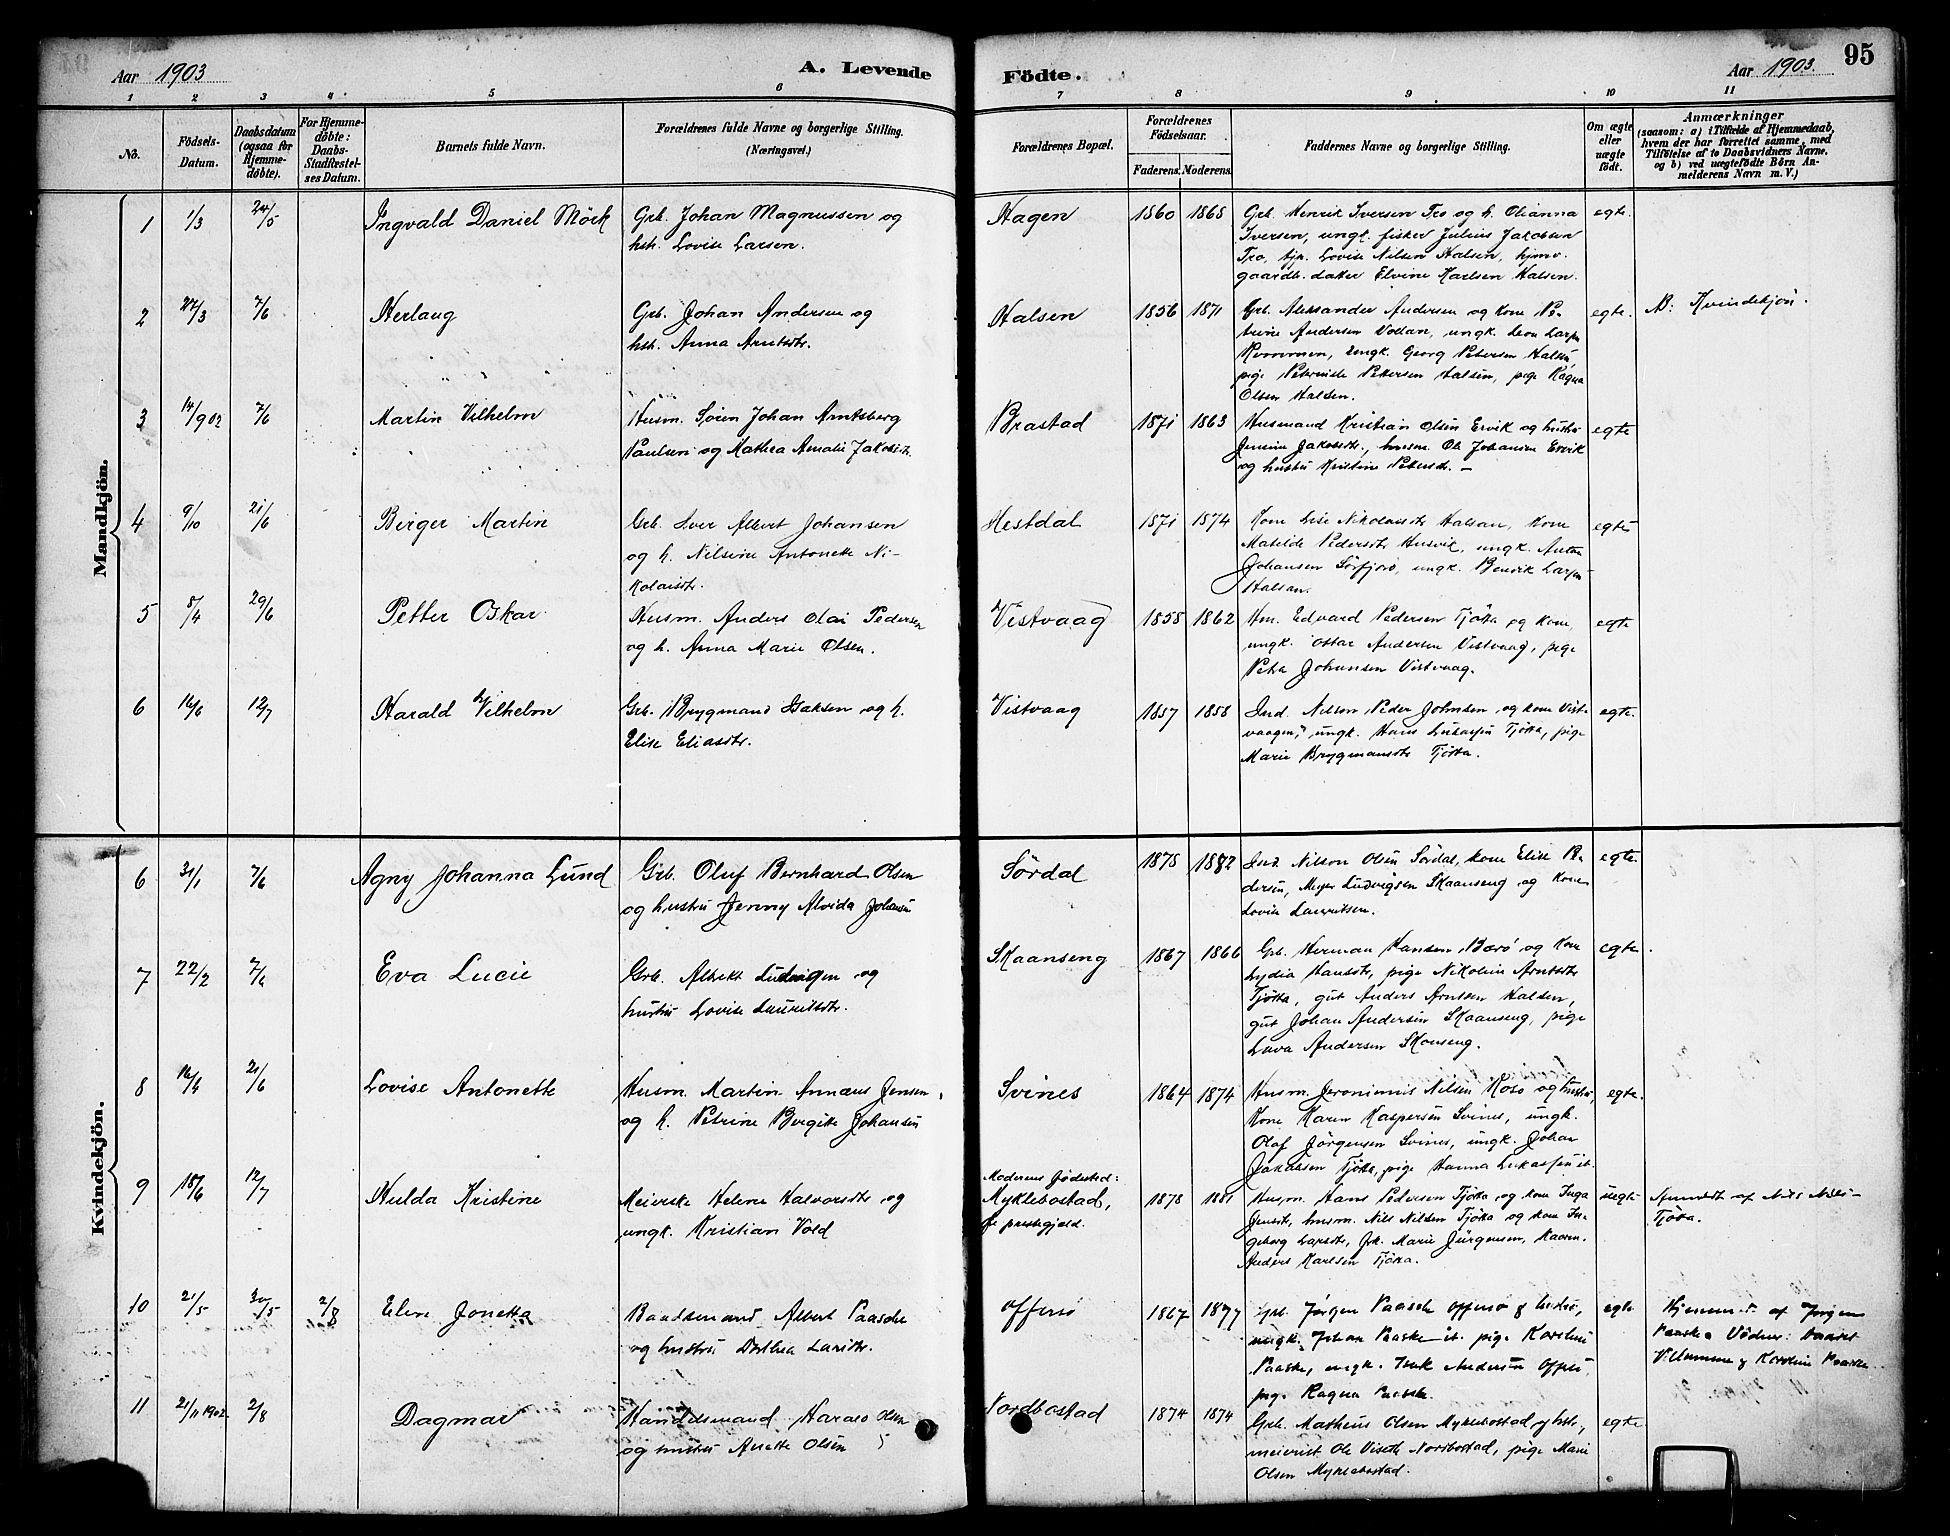 Aar 1903
A. Levende Födte.
Aar 1903.
95
1 2 3 4 5 6 7 8 9 10 11
No.
Födsels-
Datum.
Daabsdatum
(ogsaa for
Hjemme-
döbte).
For Hjemme-
döbte:
Daabs-
Stadfæstel-
ses Datum.
Barnets fulde Navn.
Forældrenes fulde Navne og borgerlige Stilling.
(Næringsvei.)
Forældrenes Bopæl.
Forældrenes
Födselsaar.
Faderens. Moderens.
Faddernes Navne og borgerlige Stilling.
Om ægte
eller
uægte
födt.
Anmærkninger
(saasom: a) i Tilfælde af Hjemmedaab,
hvem der har forrettet samme, med
Tilföielse af to Daabsvidners Navne,
og b) ved uægtefödte Börn An-
melderens Navn m. V.)
Mandkjön.
1 1/3 24/5 Ingvald Daniel Mörk
Grb. Johan Magnussen og
hst. Lovise Larsen.
Hagen 1860 1868
Grb. Henrik Iversen Tro og h. Olianna
Iversen, ungk. fisker Julius Jakobsen
Tro, tjp. Lovise Nilsen Halsen,
gaardb. datter Elvine Karlsen Halsen.
egte.
2 27/3 7/6 Herlaug
Grb. Johan Andersen og
hst. Anna Arntsdtr.
Halsen 1856 1871
Grb. Aleksander Andersen og kone Pe-
trine Andersen Vollan, ungk.
ungk. Georg Petersen Halsen
pige Petersen Halsen, pige Ragna
Olsen Halsen.
egte.
N: Kvindekjön.
3 14/9 02 7/6 Martin Vilhelm
Husm. Sören Johan Arntsberg
Paulsen og Mathea Amalie Jakobsdtr.
Brastad 1871 1863
Husmand Kristian Olsen Ervik og hustru
Jensine Jakobsdtr., husm. Ole Johansen Ervik
og hustru Kristine Petersdtr. –
egte
4 9/10 21/6 Birger Martin
Grb. Iver Albert Johansen
og h. Nilsine Antonette Ni-
kolaisdtr.
Hestdal 1871 1874
Kone Lise Nikolaisdtr Halsan, kone
Matilde Pedersdtr Husvik, ungk. Anton
Johansen Sörfjord, ungk. Benrik Larsen
Halsan.
egte
5 8/4 29/6 Petter Oskar
Husm. Anders Olai Pedersen
og h. Anna Marie Olsen.
Vistvaag 1858 1862
Hm. Edvard Pedersen Tjötta og kone,
ungk. Ottar Andersen Vistvaag, pige
Petra Johansen Vistvaag.
egte
6 16/6 12/7 Harald Vilhelm
Grb. Brygmand Isaksen og h.
Elise Eliasdtr.
Vistvaag 1857 1858
Ind. Nilson Peder Johnsen og kone Vist-
vaagen, ungk. Hans Lukassen Tjötta, pige
Marie Brygmansdtr Tjötta.
egte.
Kvindekjön.
6 31/1 7/6 Agny Johanna Lund
Grb. Oluf Bernhard Olsen
og hustru Jenny Alvida Johansen
Sördal 1878 1882
Ind. Nilson Olsen Sördal, kone Elise Pe-
dersen, Meyer Ludvigsen Skaanseng og kone
Lovise Lauritsen.
egte.
7 22/2 7/6 Eva Lucie
Grb. Albert Ludvigsen og
hustru Lovise Lauritsdtr.
Skaanseng 1867 1866
Grb. Herman Hansen Barö og kone
Lydia Hansdtr, pige Nikoline Arntsdtr
Tjötta, gut Anders Arntsen Halsen,
gut Johan Andersen Skaanseng, pige
Lava Andersen Skonseng.
egte.
8 16/4 21/6 Lovise Antonette
Husm. Martin Annæus Jensen
og h. Petrine Birgitte Johansen
Svines 1864 1874
Husm. Jeronimus Nilsen Rosö og hustru,
Kone Karen Kaspersen Svines, ungk.
Olaf Jörgensen Svines, ungk. Johan
Jakobsen Tjötta, pige Hanna Lukassen st.
egte.
9 18/6 12/7 Hulda Kristine
Meierske Helene Halvorsdtr og
ungk. Kristian Vold
Moderens Födested:
Myklebostad,
prestegjeld.
1878 1881
Husm. Hans Pedersen Tjötta og kone Inga
Jensdtr, husm. Nils Nilsen Tjötta og kone In-
geborg Larsdtr, frk. Marie Jürgensen,
Anders Karlsen Tjötta.
uegte
Anmeldt af Nils Nilsen
Tjötta.
10 21/5 30/5 2/8 Eline Jonetta
Baadsmand Albert Paasche
og hustru Dorthea Larsdtr.
Offersö 1867 1877
Grb. Jörgen Paasche Offersö & hustru,
ungk. Johan Paaske st. pige Karoline
Paaske, ungk. Isak Andersen Offersö,
pige Ragna Paasche.
egte
Hjemmed. af Jörgen
Paaske Vidner:
Villumsen & Karoline Paaske
11 21/11 1902. 2/8 Dagmar
Handelsmand Harald Olsen
og hustru Anette Olsen
Nordbostad 1874 1874
Grb. Matheus Olsen Myklebostad & hst.
meierist Ole Viseth Nordbostad, pige Marie
Olsen Myklebostad.
egte